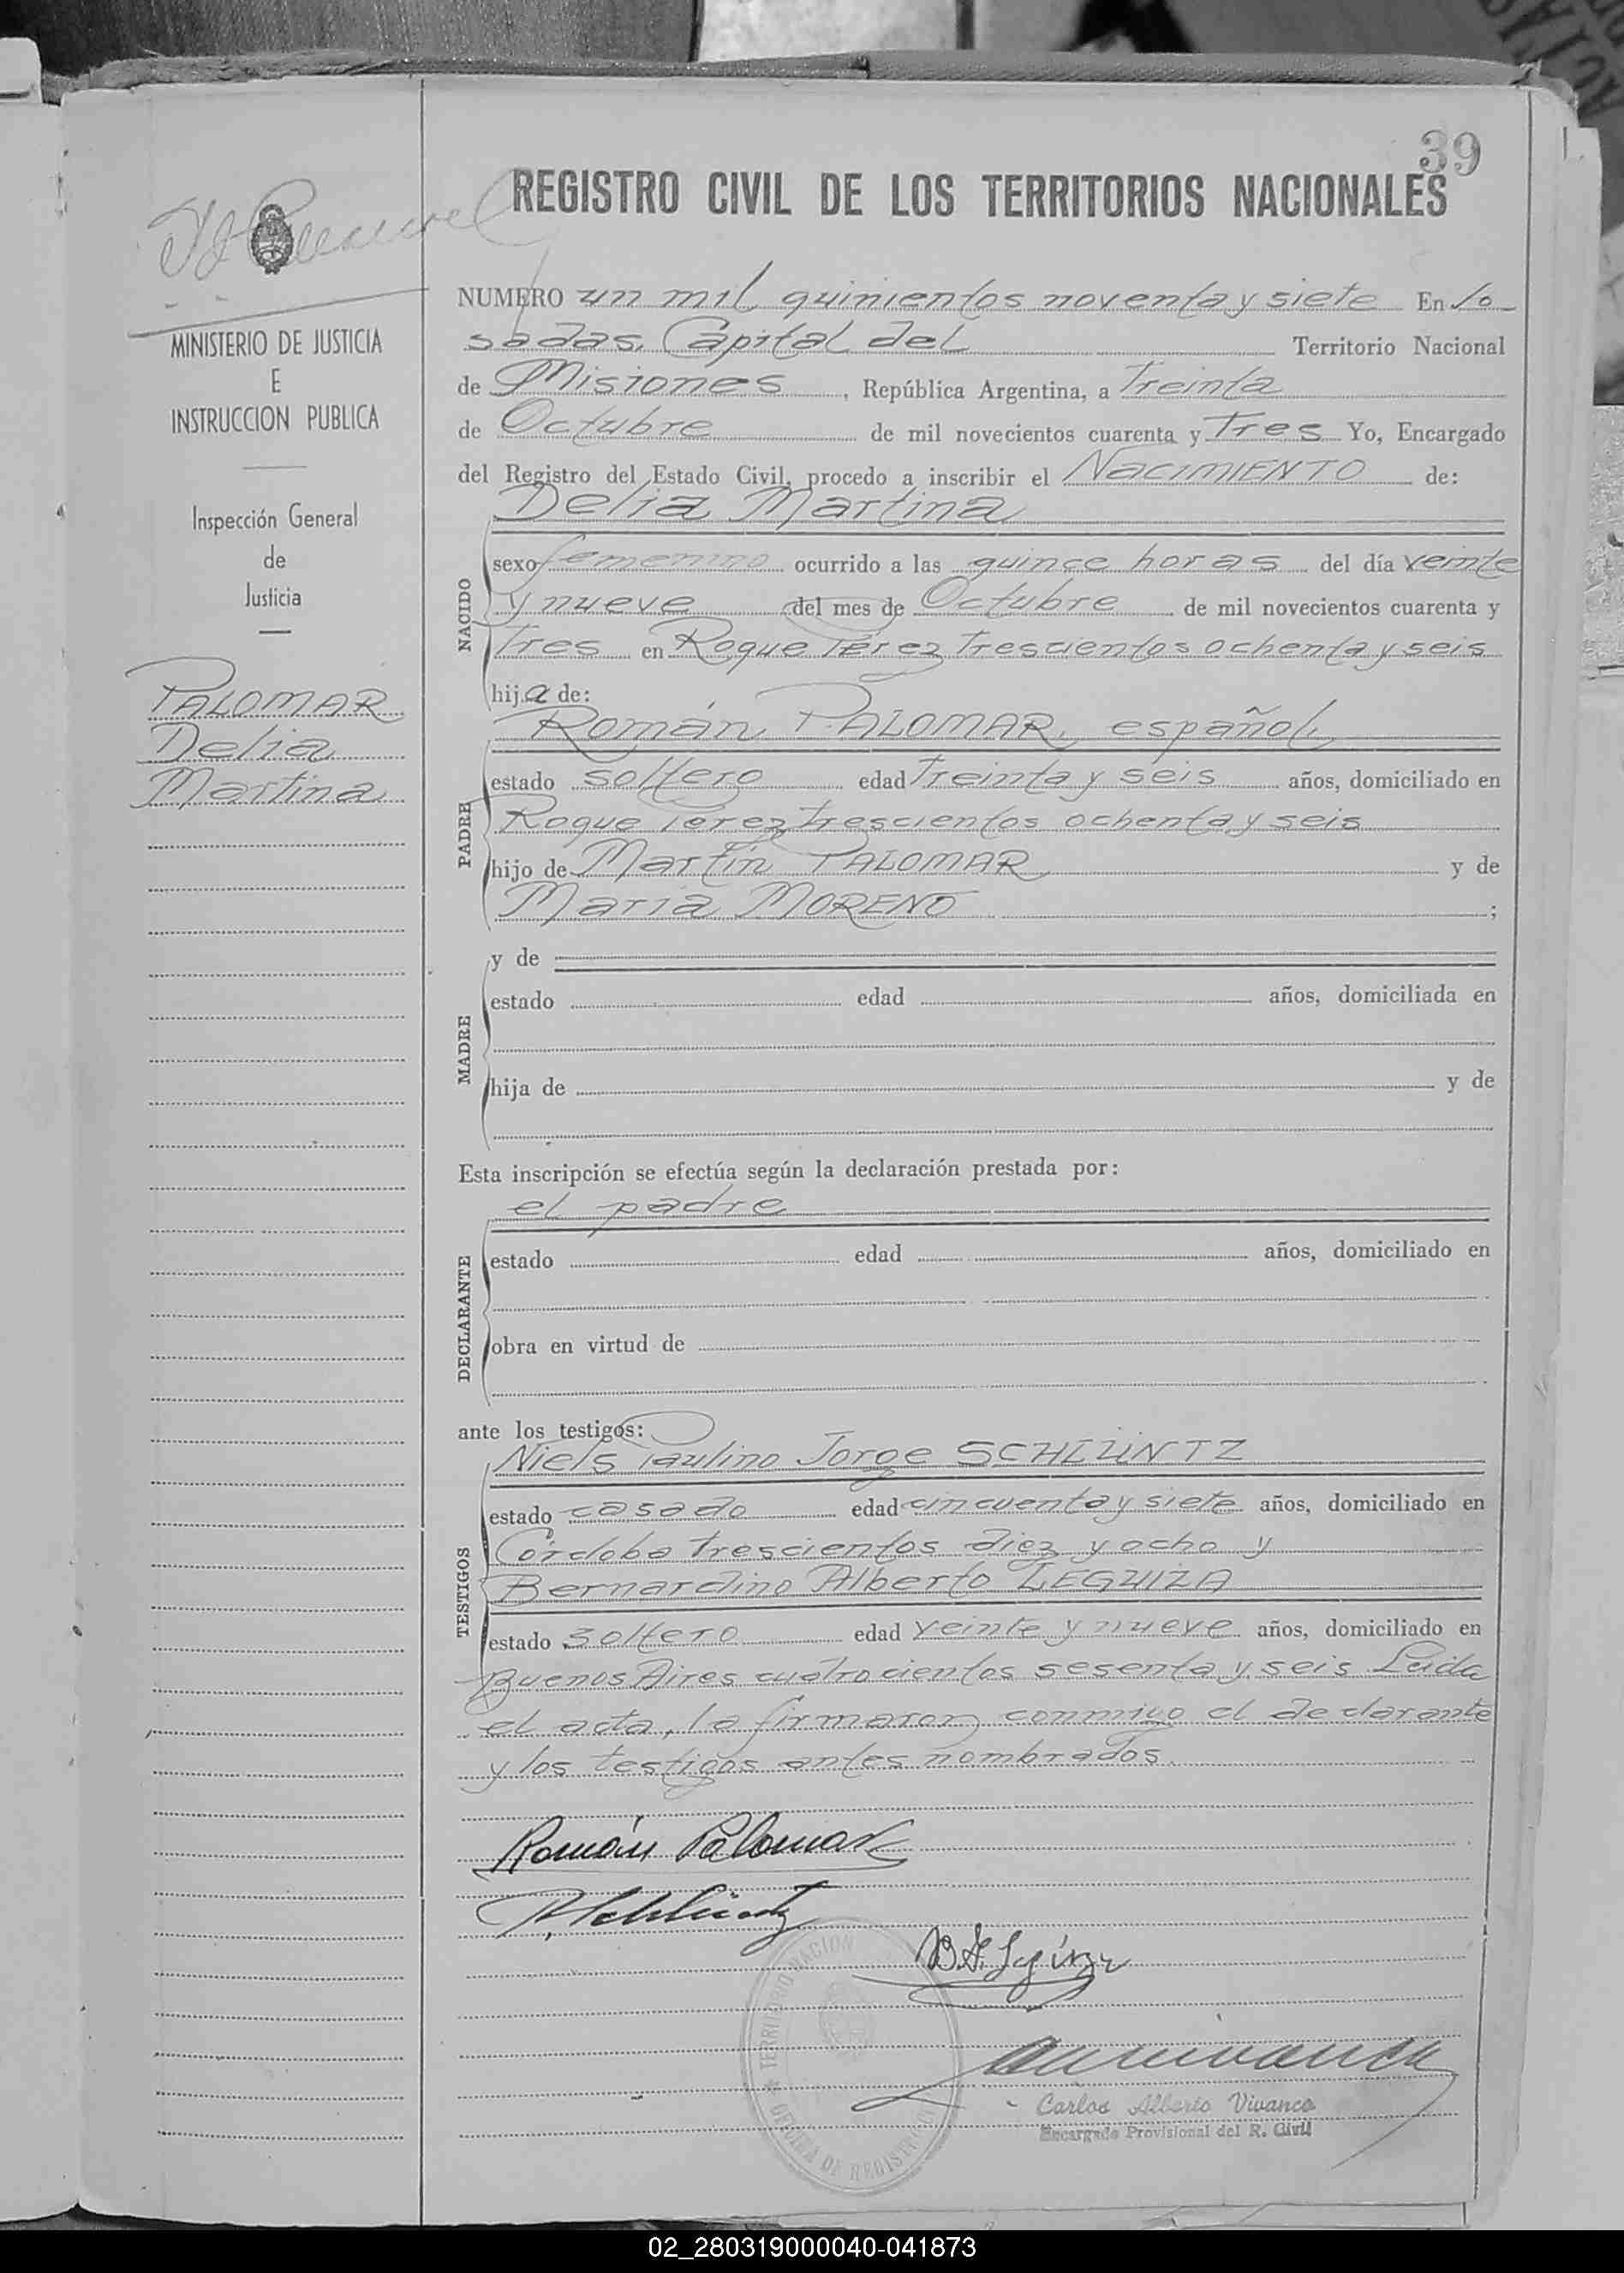 39
REGISTRO CIVIL DE LOS TERRITORIOS NACIONALES
MINISTERIO DE JUSTICIA
E
INSTRUCCION PUBLICA
Inspección General
de
Justicia
PALOMAR
Delia
Martina
NUMERO un mil quinientos noventa y siete En Po
sadas, Capital del Territorio Nacional
de Misiones, República Argentina, a Treinta
de Octubre de mil novecientos cuarenta y Tres Yo, Encargado
del Registro del Estado Civil, procedo a inscribir el NACIMIENTO de:
Delia Martina
NACIDO
sexo femenino ocurrido a las quince horas del día veinte
y nueve del mes de Octubre de mil novecientos cuarenta y
Tres en Roque Pérez Trescientos ochenta y seis
hija de:
Román PALOMAR, español,
PADRE
estado soltero edad Treinta y seis años, domiciliado en
Roque Pérez Trescientos ochenta y seis
hijo de Martín PALOMAR y de
María MORENO ;
MADRE
y de
estado edad años, domiciliada en
hija de y de
Esta inscripción se efectúa según la declaración prestada por:
el padre
DECLARANTE
estado edad años, domiciliado en
obra en virtud de
ante los testigos:
Niels Paulino Jorge SCHLÜNTZ
TESTIGOS
estado casado edad cincuenta y siete años, domiciliado en
Córdoba Trescientos diez y ocho y
Bernardino Alberto LEGUIZA
estado soltero edad veinte y nueve años, domiciliado en
Buenos Aires cuatrocientos sesenta y seis Leida
el acta, la firmaron conmigo el declarante
y los testigos antes nombrados.
Román Palomar
Carlos Alberto Vivanco
Encargado Provisional del R. Civil
02_280319000040-041873